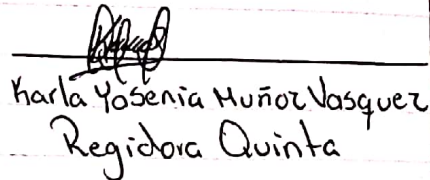 Karla Yosenia Muñoz Vasquez
Regidora Quinta